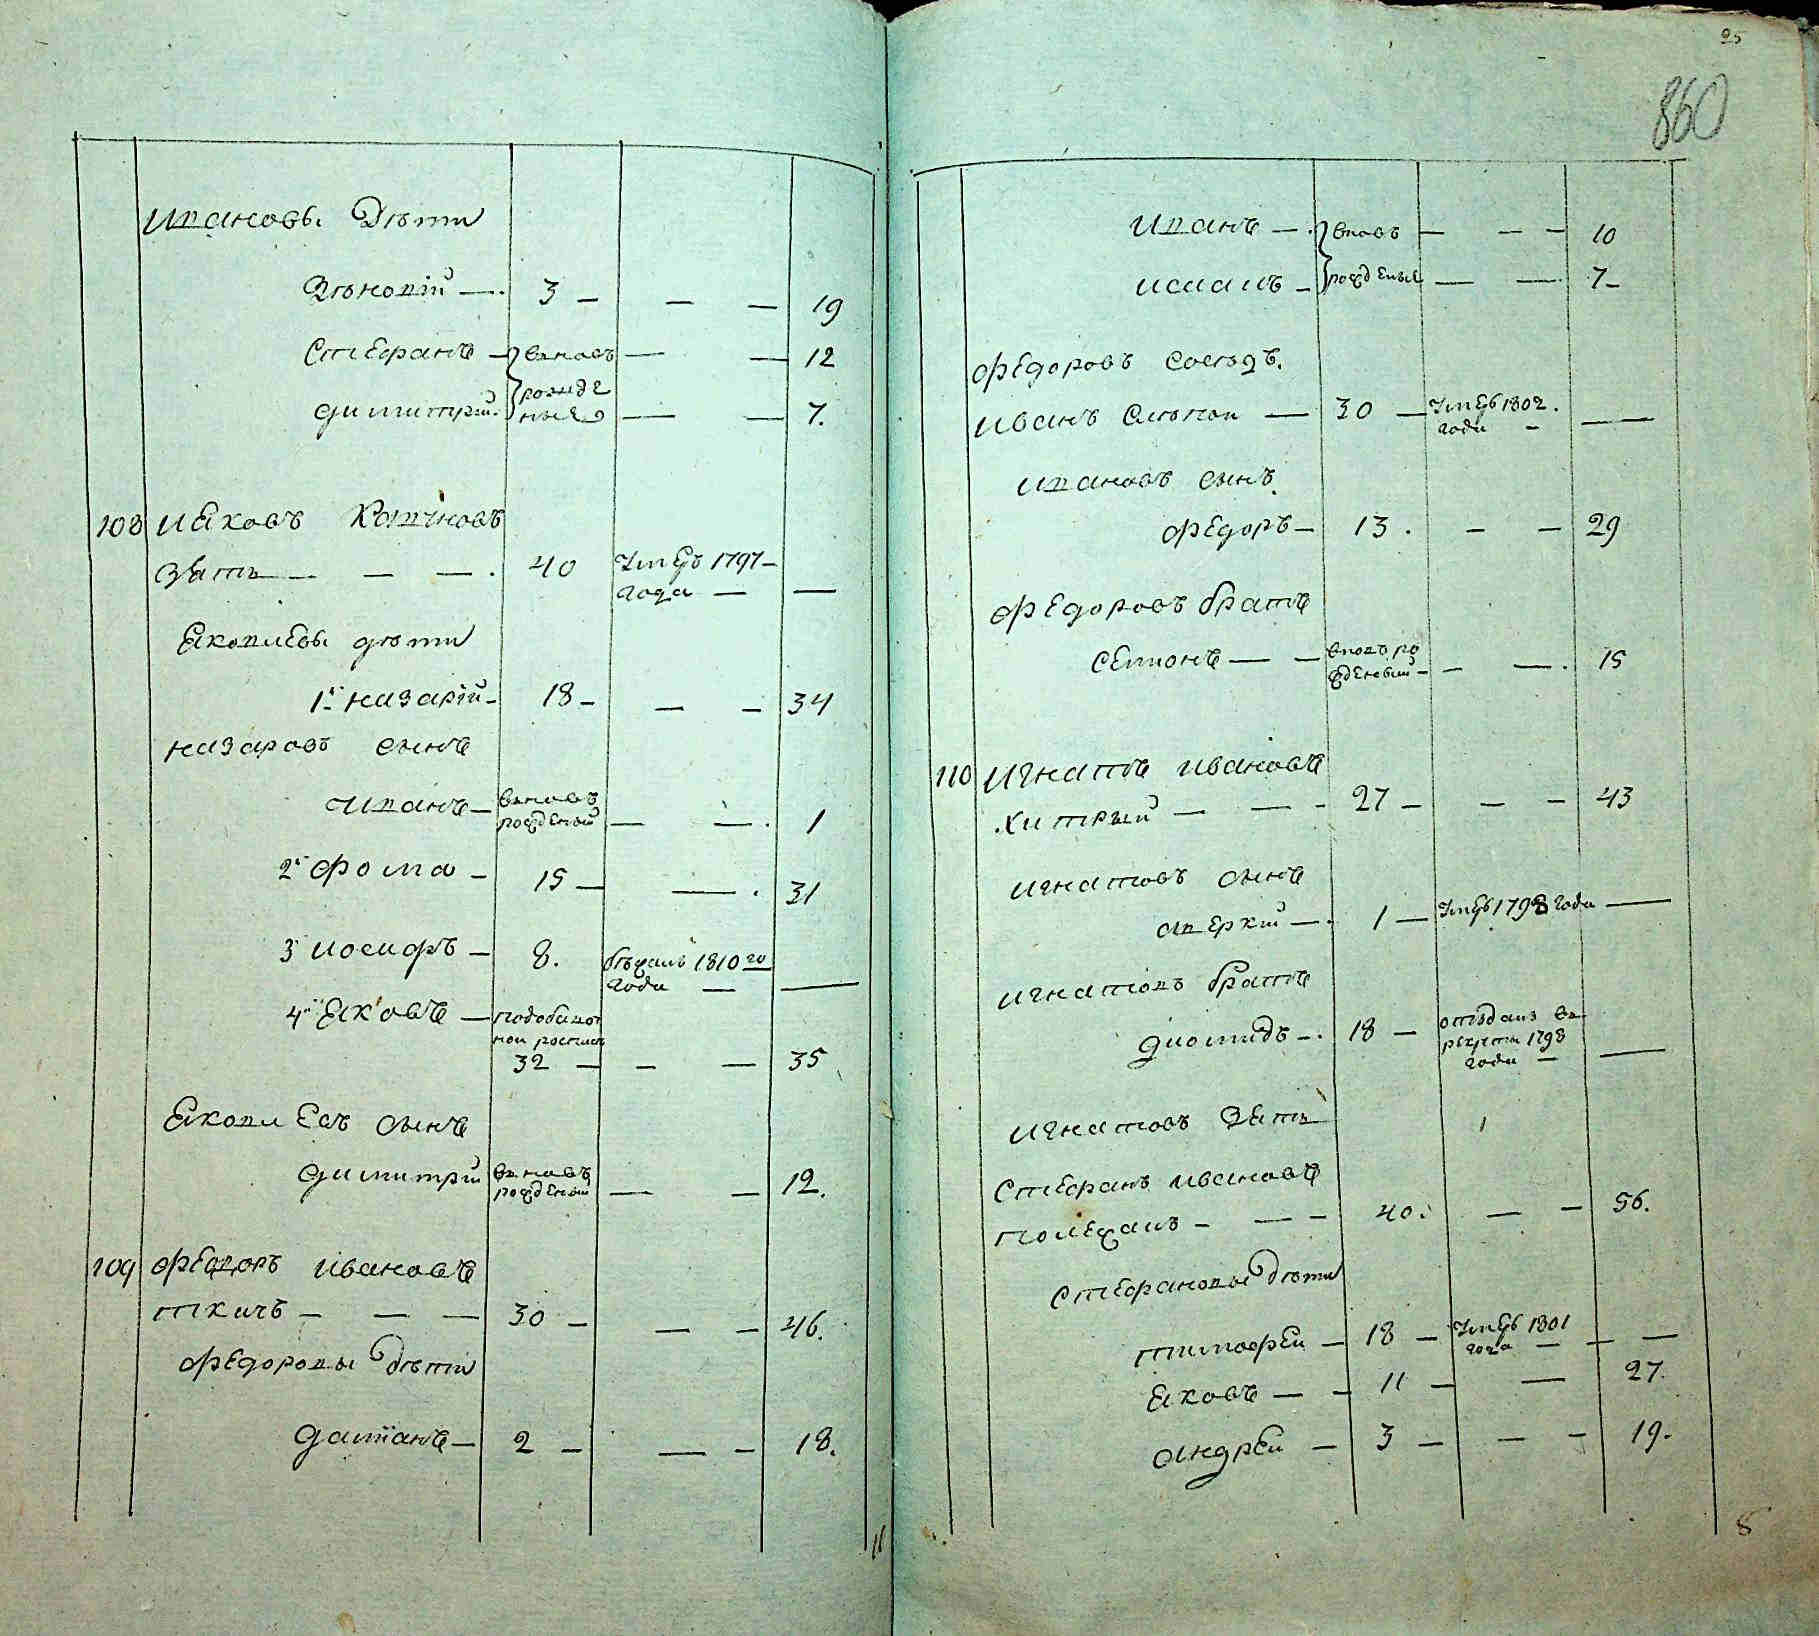 Ивановы дѣти
Зѣновій — 3 — — — 19
Стефанъ — вновь — — 12
рожде
Димитрій ные — — 7.
108 Иаковъ
зять — — — 40 Умеръ 1797
года — —
Яковлевы дѣти
1й Назарій — 18 — — — 34
Назаровъ сынъ
Иванъ — вновь
рожденый — — 1
2й Фома — 15 — — 31
3й Иосифъ — 8. бѣжалъ 1810го
года — —
4й Яковъ —
32 — — — 35
Яковлевъ сынъ
Димитрій вновь
рожденый — — 12.
109 Федоръ Ивановъ
Ткачъ — — — 30 — — — 46.
Федоровы дѣти
Даміанъ — 2 — — — 18.
11
25
860
Иванъ — вновь — — — 10
рожденые
— — 7
Федоровъ сосѣдъ.
Иванъ Слѣпой — 30 — Умеръ 1802.
года — —
Ивановъ сынъ
Федоръ — 13. — — 29
Федоровъ братъ
Семіонъ — — вновь ро
жденый — — — 15
110 Игнатъ Ивановъ
Хитрый — — — 27 — — — 43
Игнатовъ сынъ
Аверкій — 1 — Умеръ 1798 года —
Игнатовъ братъ
Диомидъ — 18 — отъданъ въ
рекруты 1798
года — —
Игнатовъ зять
Стефанъ Ивановъ
Полежай — — — 40. — — 56.
Стефановы дѣти
Тимофей — 18 — Умеръ 1801
года — — —
Яковъ — — 11 — — 27.
Андрей — 3 — — — 19.
8